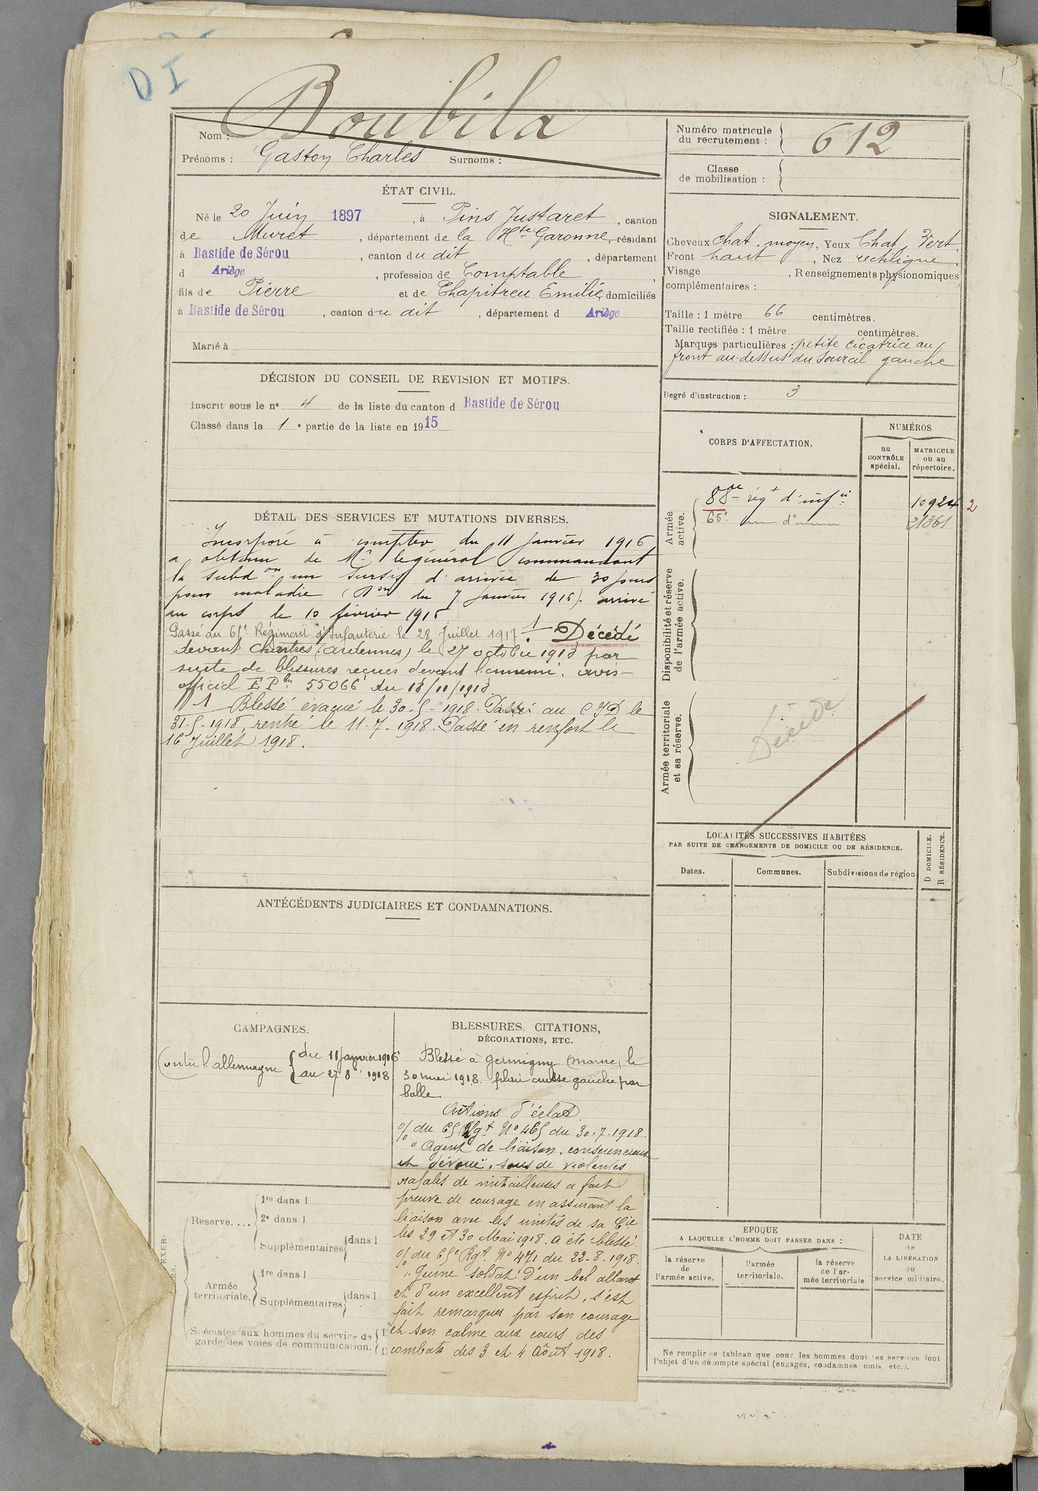 DI
Nom : Boubila
Prénoms : Gaston Charles Surnoms :
Numéro matricule du recrutement : 612
Classe de mobilisation :
ÉTAT CIVIL.
Né le 20 Juin 1897, à Pins Justaret, canton
de Muret, département de la Hte Garonne, résidant
à Bastide de Sérou, canton du dit, département
d Ariège, profession de Comptable
fils de Pierre et de Chapitreu Emilie, domiciliés
à Bastide de Sérou, canton du dit, département d Ariège
Marié à
SIGNALEMENT.
Cheveux chat. moyen, Yeux Chat. Vert
Front haut, Nez rectiligne
Visage , Renseignements physionomiques
complémentaires :
Taille : 1 mètre 66 centimètres.
Taille rectifiée : 1 mètre centimètres.
Marques particulières : petite cicatrice au
front au-dessus du sourcil gauche
Degré d'instruction : 3
DÉCISION DU CONSEIL DE REVISION ET MOTIFS.
Inscrit sous le n° 4 de la liste du canton d Bastide de Sérou
Classé dans la 1e partie de la liste en 1915
DÉTAIL DES SERVICES ET MUTATIONS DIVERSES.
Incorporé à compter du 11 janvier 1916
a obtenu de Mr le général commandant
la subdon un sursis d'arrivée de 30 jours
pour maladie (Don du 7 janvier 1916). arrivé
au corps le 10 février 1916
Passé au 65e Régiment d'Infanterie le 28 Juillet 1917. 1 Décédé
devant Chestres (Ardennes) le 27 octobre 1918 par
suite de blessures reçues devant l'ennemi. avis
officiel EP 55066 du 18/11/1918
1 Blessé évacué le 30-5-1918. Passé au CID le
31-5-1918, rentré le 11-7-1918. Passé en renfort le
16 Juillet 1918.
CORPS D'AFFECTATION.
NUMÉROS
au CONTRÔLE spécial.
MATRICULE ou au répertoire.
Armée active.
88me régt d'infie 10924 2
65e d° 21861
Disponibilité et réserve de l'armée active.
Armée territoriale et sa réserve.
Décédé
LOCALITÉS SUCCESSIVES HABITÉES
PAR SUITE DE CHANGEMENTS DE DOMICILE OU DE RÉSIDENCE.
Dates.
Communes.
Subdivisions de région
D DOMICILE.
R RÉSIDENCE.
ANTÉCÉDENTS JUDICIAIRES ET CONDAMNATIONS.
CAMPAGNES.
Contre l'allemagne { du 11 janvier 1916
au 27 8bre 1918
BLESSURES, CITATIONS,
DÉCORATIONS, ETC.
Blessé à Germigny (Marne) le
30 mai 1918. plaie cuisse gauche par
balle
Actions d'éclat
O/ du 65 Rgt N° 465 du 30-7-1918.
"Agent de liaison, consciencieux
et dévoué, sous de violentes
rafales de mitrailleuses a fait
preuve de courage en assurant la
liaison avec les unités de sa Cie
les 29 et 30 Mai 1918. a été blessé
O/ du 65e Rgt N° 471 du 22-8-1918.
"Jeune soldat d'un bel allant
et d'un excellent esprit, s'est
fait remarquer par son courage
et son calme aux cours des
combats des 3 et 4 Août 1918.
Réserve....
1re dans l
2e dans l
Supplémentaires dans l
Armée territoriale.
1re dans l
Supplémentaires dans l
Spéciales aux hommes du service de
garde des voies de communication.
EPOQUE
A LAQUELLE L'HOMME DOIT PASSER DANS :
la réserve de l'armée active.
l'armée territoriale.
la réserve de l'armée territoriale
DATE de LA LIBÉRATION du service militaire.
Ne remplir ce tableau que pour les hommes dont les services font
l'objet d'un décompte spécial (engagés, condamnés omis etc.).